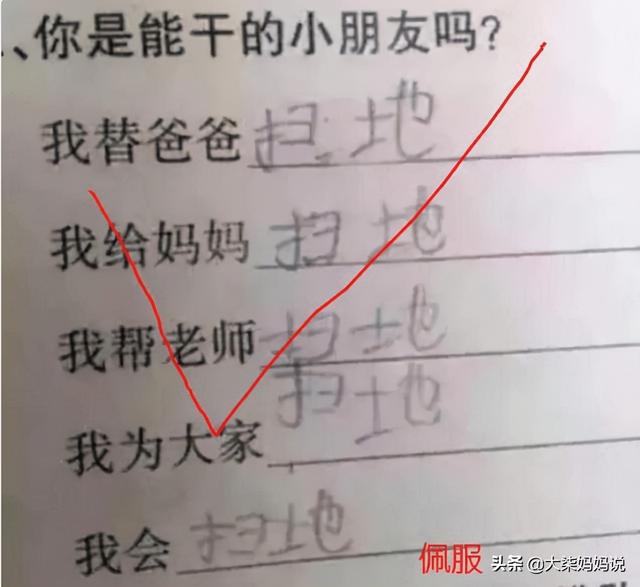 、你是能干的小朋友吗？
我替爸爸扫地
我给妈妈扫地
我帮老师扫地
我为大家扫地
我会扫地
佩服 头条 @大柒妈妈说